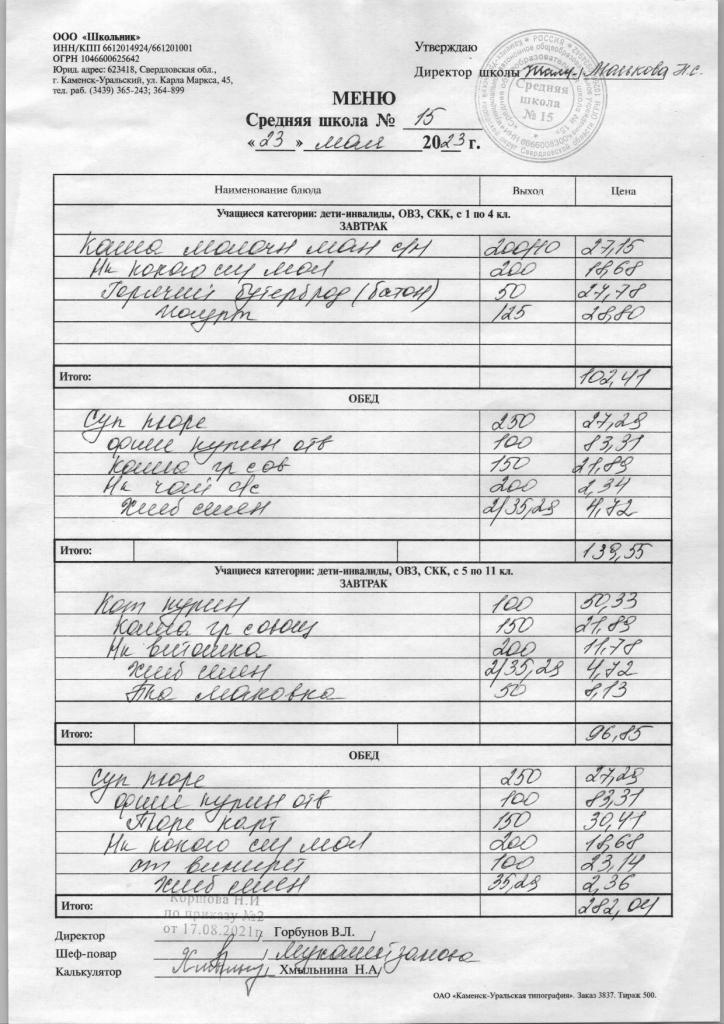 ООО «Школьник»
ИНН/КПП 6612014924/661201001
ОГРН 1046600625642
Юрид. адрес: 623418, Свердловская обл.,
г. Каменск-Уральский, ул. Карла Маркса, 45,
тел. раб. (3439) 365-243; 364-899
Утверждаю
Директор школы
Средняя
школа
№ 15
МЕНЮ
Средняя школа № 15
« 23 » мая 2023 г.
Наименование блюда Выход Цена
Учащиеся категории: дети-инвалиды, ОВЗ, СКК, с 1 по 4 кл.
ЗАВТРАК
Каша молочн ман с/м 200/10 27,15
Н-к какао сгу мол 200 18,68
Горячий бутерброд (батон) 50 27,78
Йогурт 125 28,80
Итого: 102,41
ОБЕД
Суп пюре 250 27,29
филе курин отв 100 83,31
Каша гр сов 150 21,89
Н-к чай с/с 200 2,34
Хлеб смен 2/35,29 4,72
Итого: 139,55
Учащиеся категории: дети-инвалиды, ОВЗ, СКК, с 5 по 11 кл.
ЗАВТРАК
Кот курин 100 50,33
Каша гр 150 21,89
Н-к витошка 200 11,78
Хлеб смен 2/35,29 4,72
маковка 50 8,13
Итого: 96,85
ОБЕД
Суп пюре 250 27,29
филе курин отв 100 83,31
Пюре карт 150 30,41
Н-к какао сгу мол 200 18,68
от винигрет 100 23,14
Хлеб смен 35,29 2,36
Итого: 282,04
Коршова Н.И
по приказу №2
от 17.08.2021г.
Директор / Горбунов В.Л. /
Шеф-повар
Калькулятор / Хмыльнина Н.А/
ОАО «Каменск-Уральская типография». Заказ 3837. Тираж 500.